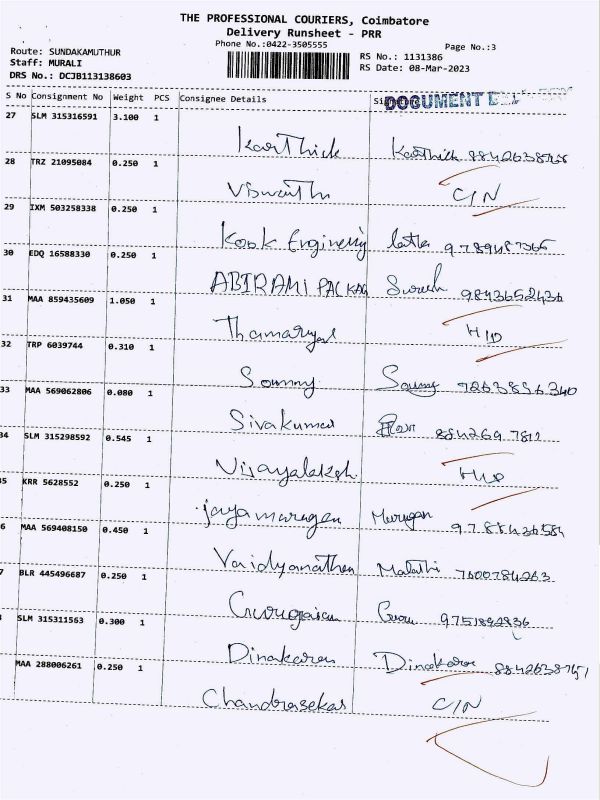 THE PROFESSIONAL COURIERS, Coimbatore
Delivery Runsheet - PRR
Phone No.:0422-3505555
Page No.:3
Route: SUNDAKAMUTHUR
Staff: MURALI
DRS No.: DCJB113138603
RS No.: 1131386
RS Date: 08-Mar-2023
S No Consignment No Weight PCS Consignee Details
DOCUMENT
27 SLM 315316591 3.100 1
Karthick Karthick
28 TRZ 21095084 0.250 1
C/N
29 IXM 503258338 0.250 1
30 EDQ 16588330 0.250 1
ABIRAMI Suresh 9843652436
31 MAA 859435609 1.050 1
32 TRP 6039744 0.310 1
33 MAA 569062806 0.080 1
Sivakumar 884269 7812
34 SLM 315298592 0.545 1
35 KRR 5628552 0.250 1
jayamurugan Murugan
6 MAA 569408150 0.450 1
Vaidyanathan Malathi
7 BLR 445496687 0.250 1
SLM 315311563 0.300 1
Dinakaran Dinakaran
MAA 288006261 0.250 1
Chandrasekar C/N